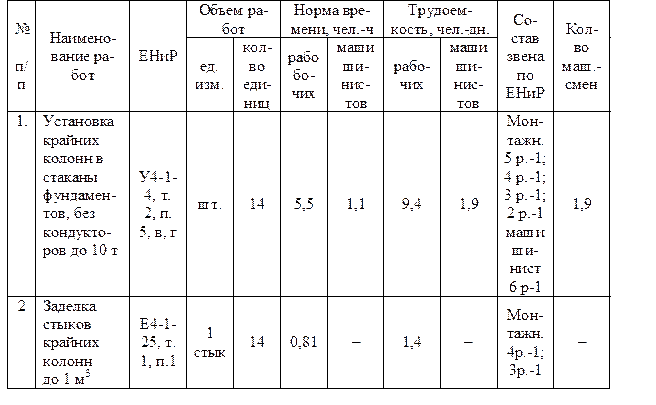 №
п/
п
Наимено-
вание ра-
бот
ЕНиР
Объем ра-
бот
ед.
изм.
кол-
во
еди-
ниц
Норма вре-
мени, чел.-ч
рабо
бо-
чих
маши
ши-
нис-
тов
Трудоем-
кость, чел.-дн.
рабо-
чих
маши
ши-
нис-
тов
Со-
став
звена
по
ЕНиР
Кол-
во
маш.-
смен
1.
Установка
крайних
колонн в
стаканы
фундамен-
тов, без
кондукто-
ров до 10 т
У4-1-
4, т.
2, п.
5, в, г
шт.
14
5,5
1,1
9,4
1,9
Мон-
тажн.
5 р.-1;
4 р.-1;
3 р.-1;
2 р.-1
маши
ши-
нист
6 р-1
1,9
2
Заделка
стыков
крайних
колонн
до 1 м³
Е4-1-
25, т.
1, п.1
1
стык
14
0,81
–
1,4
–
Мон-
тажн.
4р.-1;
3р.-1
–